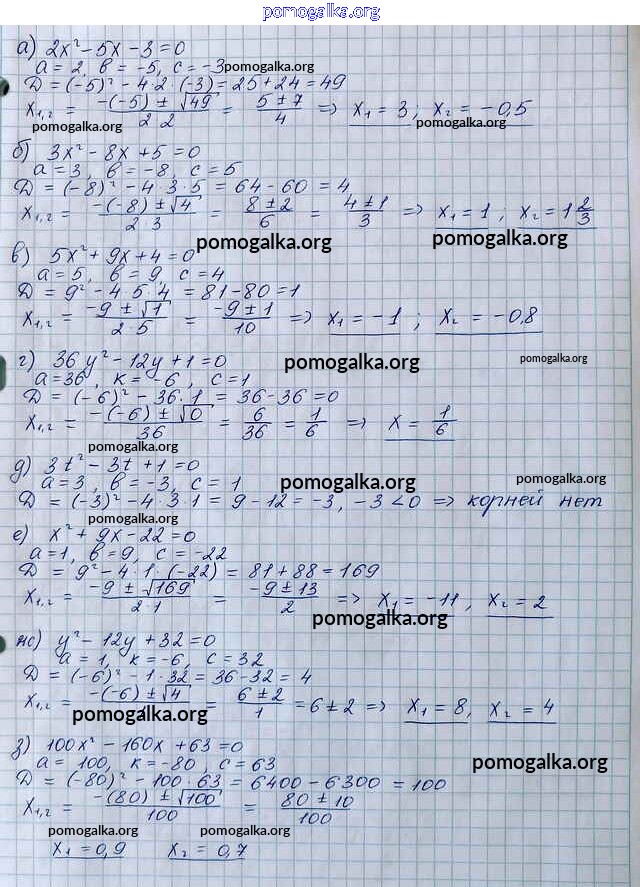 pomogalka.org
а) 2x² - 5x - 3 = 0
a = 2, в = -5, c = -3 pomogalka.org
D = (-5)² - 4·2·(-3) = 25 + 24 = 49
x₁,₂ = (-(-5) ± √49)/(2·2) = (5 ± 7)/4 => x₁ = 3; x₂ = -0,5
pomogalka.org pomogalka.org
б) 3x² - 8x + 5 = 0
a = 3, в = -8, c = 5
D = (-8)² - 4·3·5 = 64 - 60 = 4
x₁,₂ = (-(-8) ± √4)/(2·3) = (8 ± 2)/6 = (4 ± 1)/3 => x₁ = 1, x₂ = 1 2/3
pomogalka.org pomogalka.org
в) 5x² + 9x + 4 = 0
a = 5, в = 9, c = 4
D = 9² - 4·5·4 = 81 - 80 = 1
x₁,₂ = (-9 ± √1)/(2·5) = (-9 ± 1)/10 => x₁ = -1; x₂ = -0,8
г) 36y² - 12y + 1 = 0 pomogalka.org pomogalka.org
a = 36, к = -6, c = 1
D = (-6)² - 36·1 = 36 - 36 = 0
x₁,₂ = (-(-6) ± √0)/36 = 6/36 = 1/6 => x = 1/6
pomogalka.org
д) 3t² - 3t + 1 = 0
a = 3, в = -3, c = 1 pomogalka.org pomogalka.org
D = (-3)² - 4·3·1 = 9 - 12 = -3, -3 < 0 => корней нет
pomogalka.org
е) x² + 9x - 22 = 0
a = 1, в = 9, c = -22
D = 9² - 4·1·(-22) = 81 + 88 = 169
x₁,₂ = (-9 ± √169)/(2·1) = (-9 ± 13)/2 => x₁ = -11, x₂ = 2
pomogalka.org
ж) y² - 12y + 32 = 0
a = 1, к = -6, c = 32
D = (-6)² - 1·32 = 36 - 32 = 4
x₁,₂ = (-(-6) ± √4)/1 = (6 ± 2)/1 = 6 ± 2 => x₁ = 8, x₂ = 4
pomogalka.org
з) 100x² - 160x + 63 = 0
a = 100, к = -80, c = 63 pomogalka.org
D = (-80)² - 100·63 = 6400 - 6300 = 100
x₁,₂ = (-(80) ± √100)/100 = (80 ± 10)/100
pomogalka.org pomogalka.org
x₁ = 0,9 x₂ = 0,7